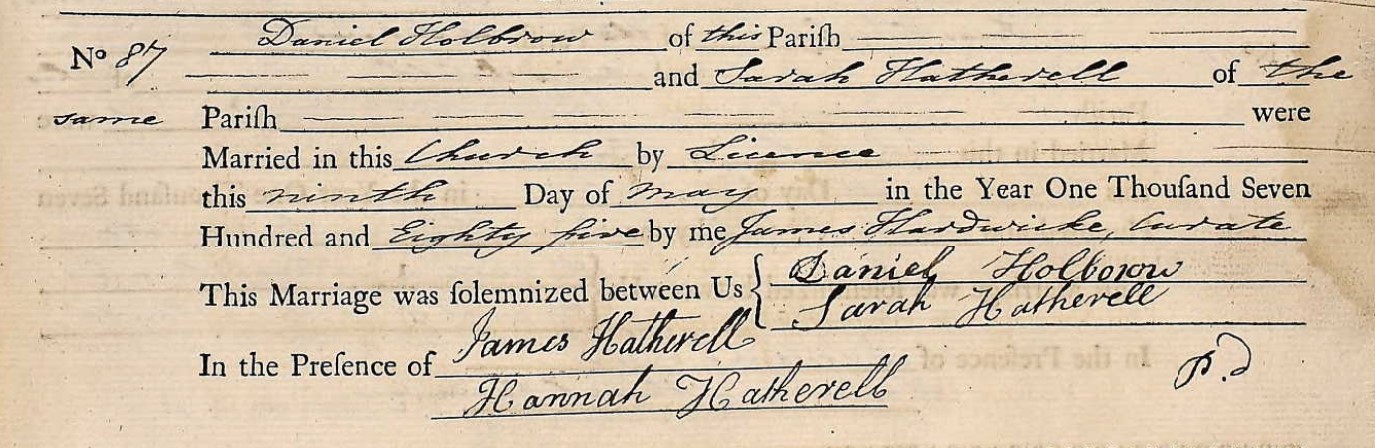 Nº 87 Daniel Holbrow of this Pariſh
and Sarah Hatherell of the
same Pariſh were
Married in this Church by Licence
this ninth Day of may in the Year One Thouſand Seven
Hundred and Eighty five by me James Hardwicke, Curate
This Marriage was ſolemnized between Us { Daniel Holborow
Sarah Hatherell
In the Preſence of James Hatherell
Hannah Hatherell
P.d